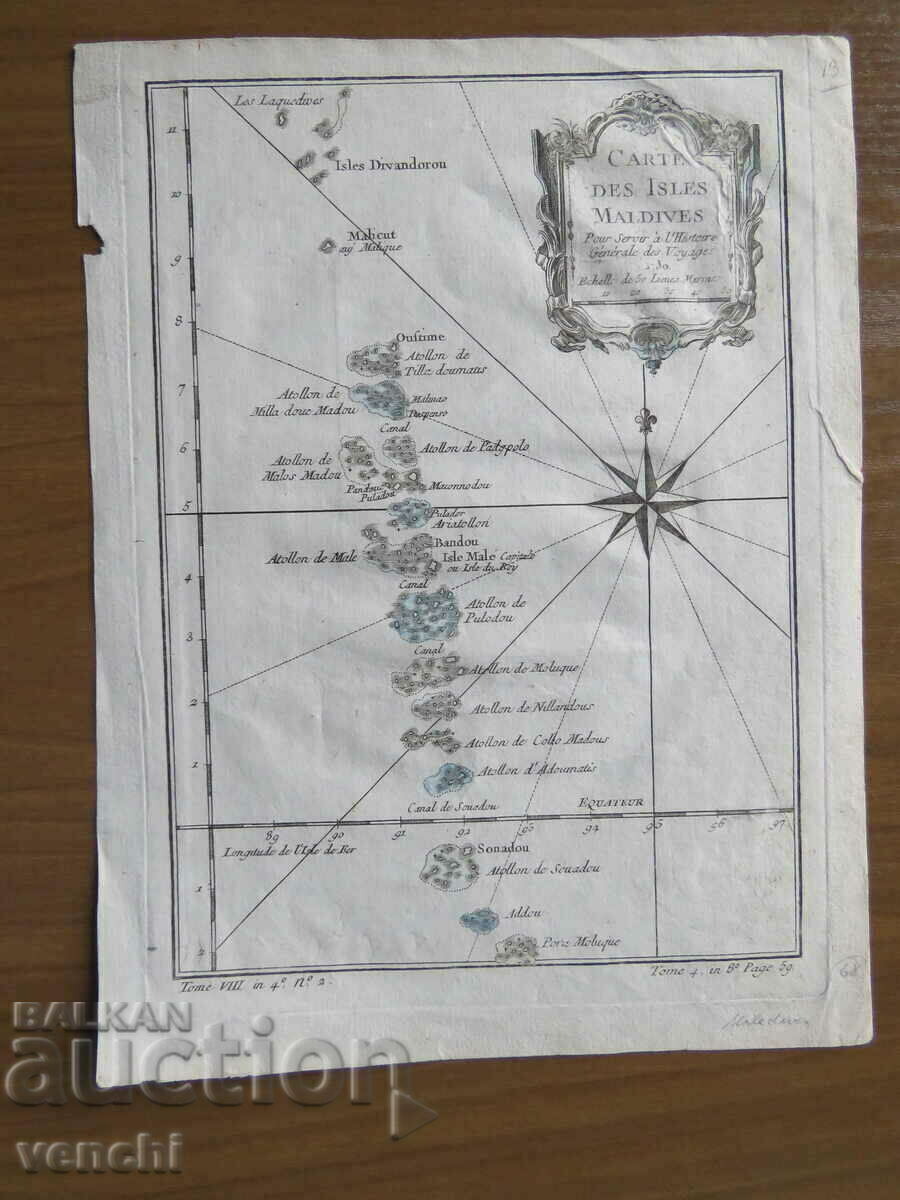 19
CARTE
DES ISLES
MALDIVES
Pour Servir à l'Histoire
Générale des Voyages
Echelle de 50 Lieues Marines
10 20 30 4
Les Laquedives
11
Isles Divandorou
10
Malicut
ou Malique
9
8
Oustime
Atollon de
Tilla doumatis
7
Atollon de
Milla douc Madou
Malmao
Daspenso
Canal
6
Atollon de Padypolo
Atollon de
Malos Madou
Pandou
Puladou
Maconnodou
5
Pulador
Ariatollon
Bandou
Atollon de Male
Isle Malé Capitale
ou Isle du Roy
4
Canal
Atollon de
Pulodou
3
Canal
Atollon de Moluque
2
Atollon de Nillandous
Atollon de Collo Madous
1
Atollon d'Adoumatis
Canal de Souadou
EQUATEUR
89 90 91 92 93 94 95 96 97
Longitude de l'Isle de Fer
Souadou
Atollon de Souadou
1
Addou
2
Pora Moluque
Tome VIII in 4º. Nº. 2.
Tome 4. in 8º Page 59.
68
Malediven
BALKAN
auction
venchi